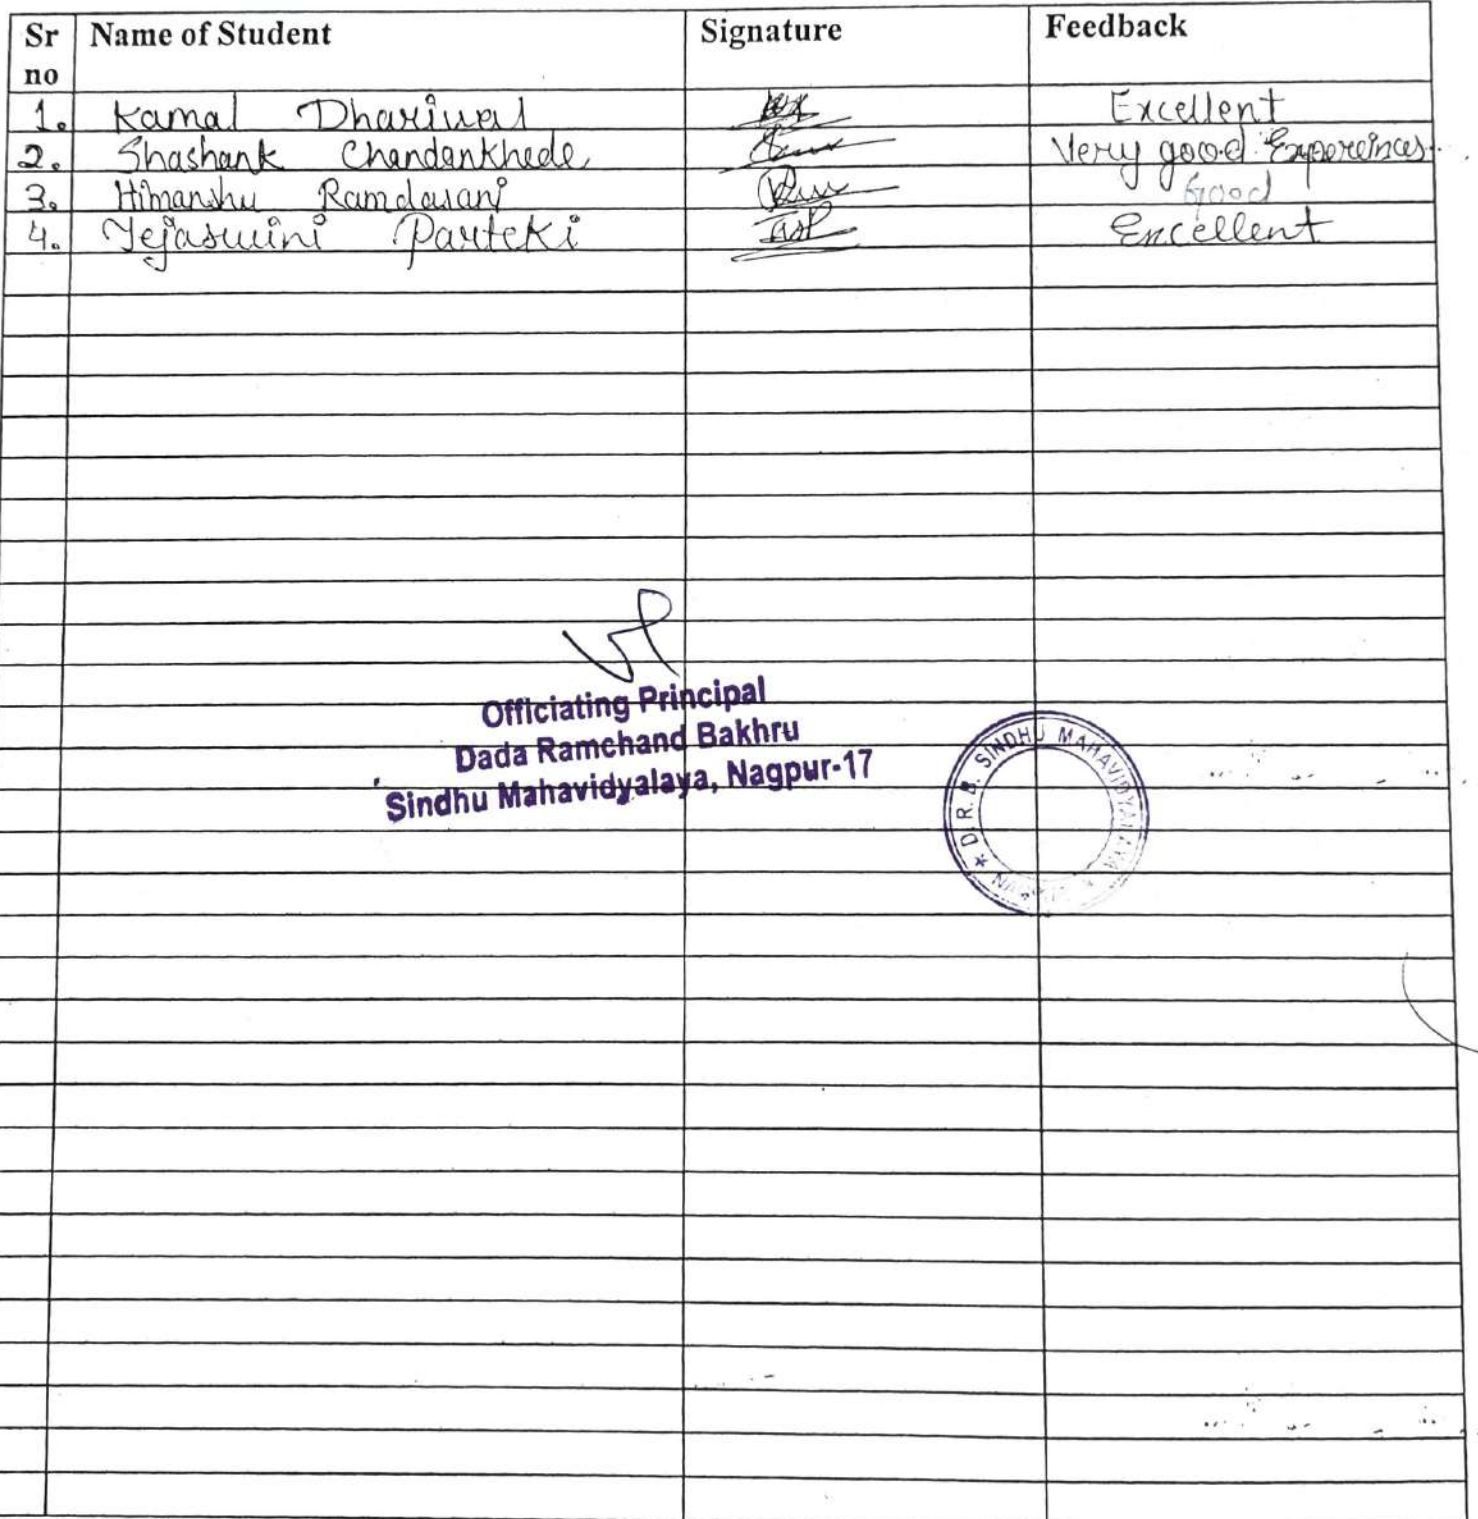 Sr no Name of Student Signature Feedback
1. Kamal Dhariwal Excellent
2. Shashank Chandankhede Very good Expereinces.
3. Himanshu Ramdasani Good
4. Tejaswini Parteki Excellent
Officiating Principal
Dada Ramchand Bakhru
Sindhu Mahavidyalaya, Nagpur-17
* D.R.B. SINDHU MAHAVIDYALAYA *